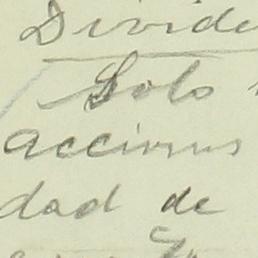 Divide
Solo
acciones
dad de